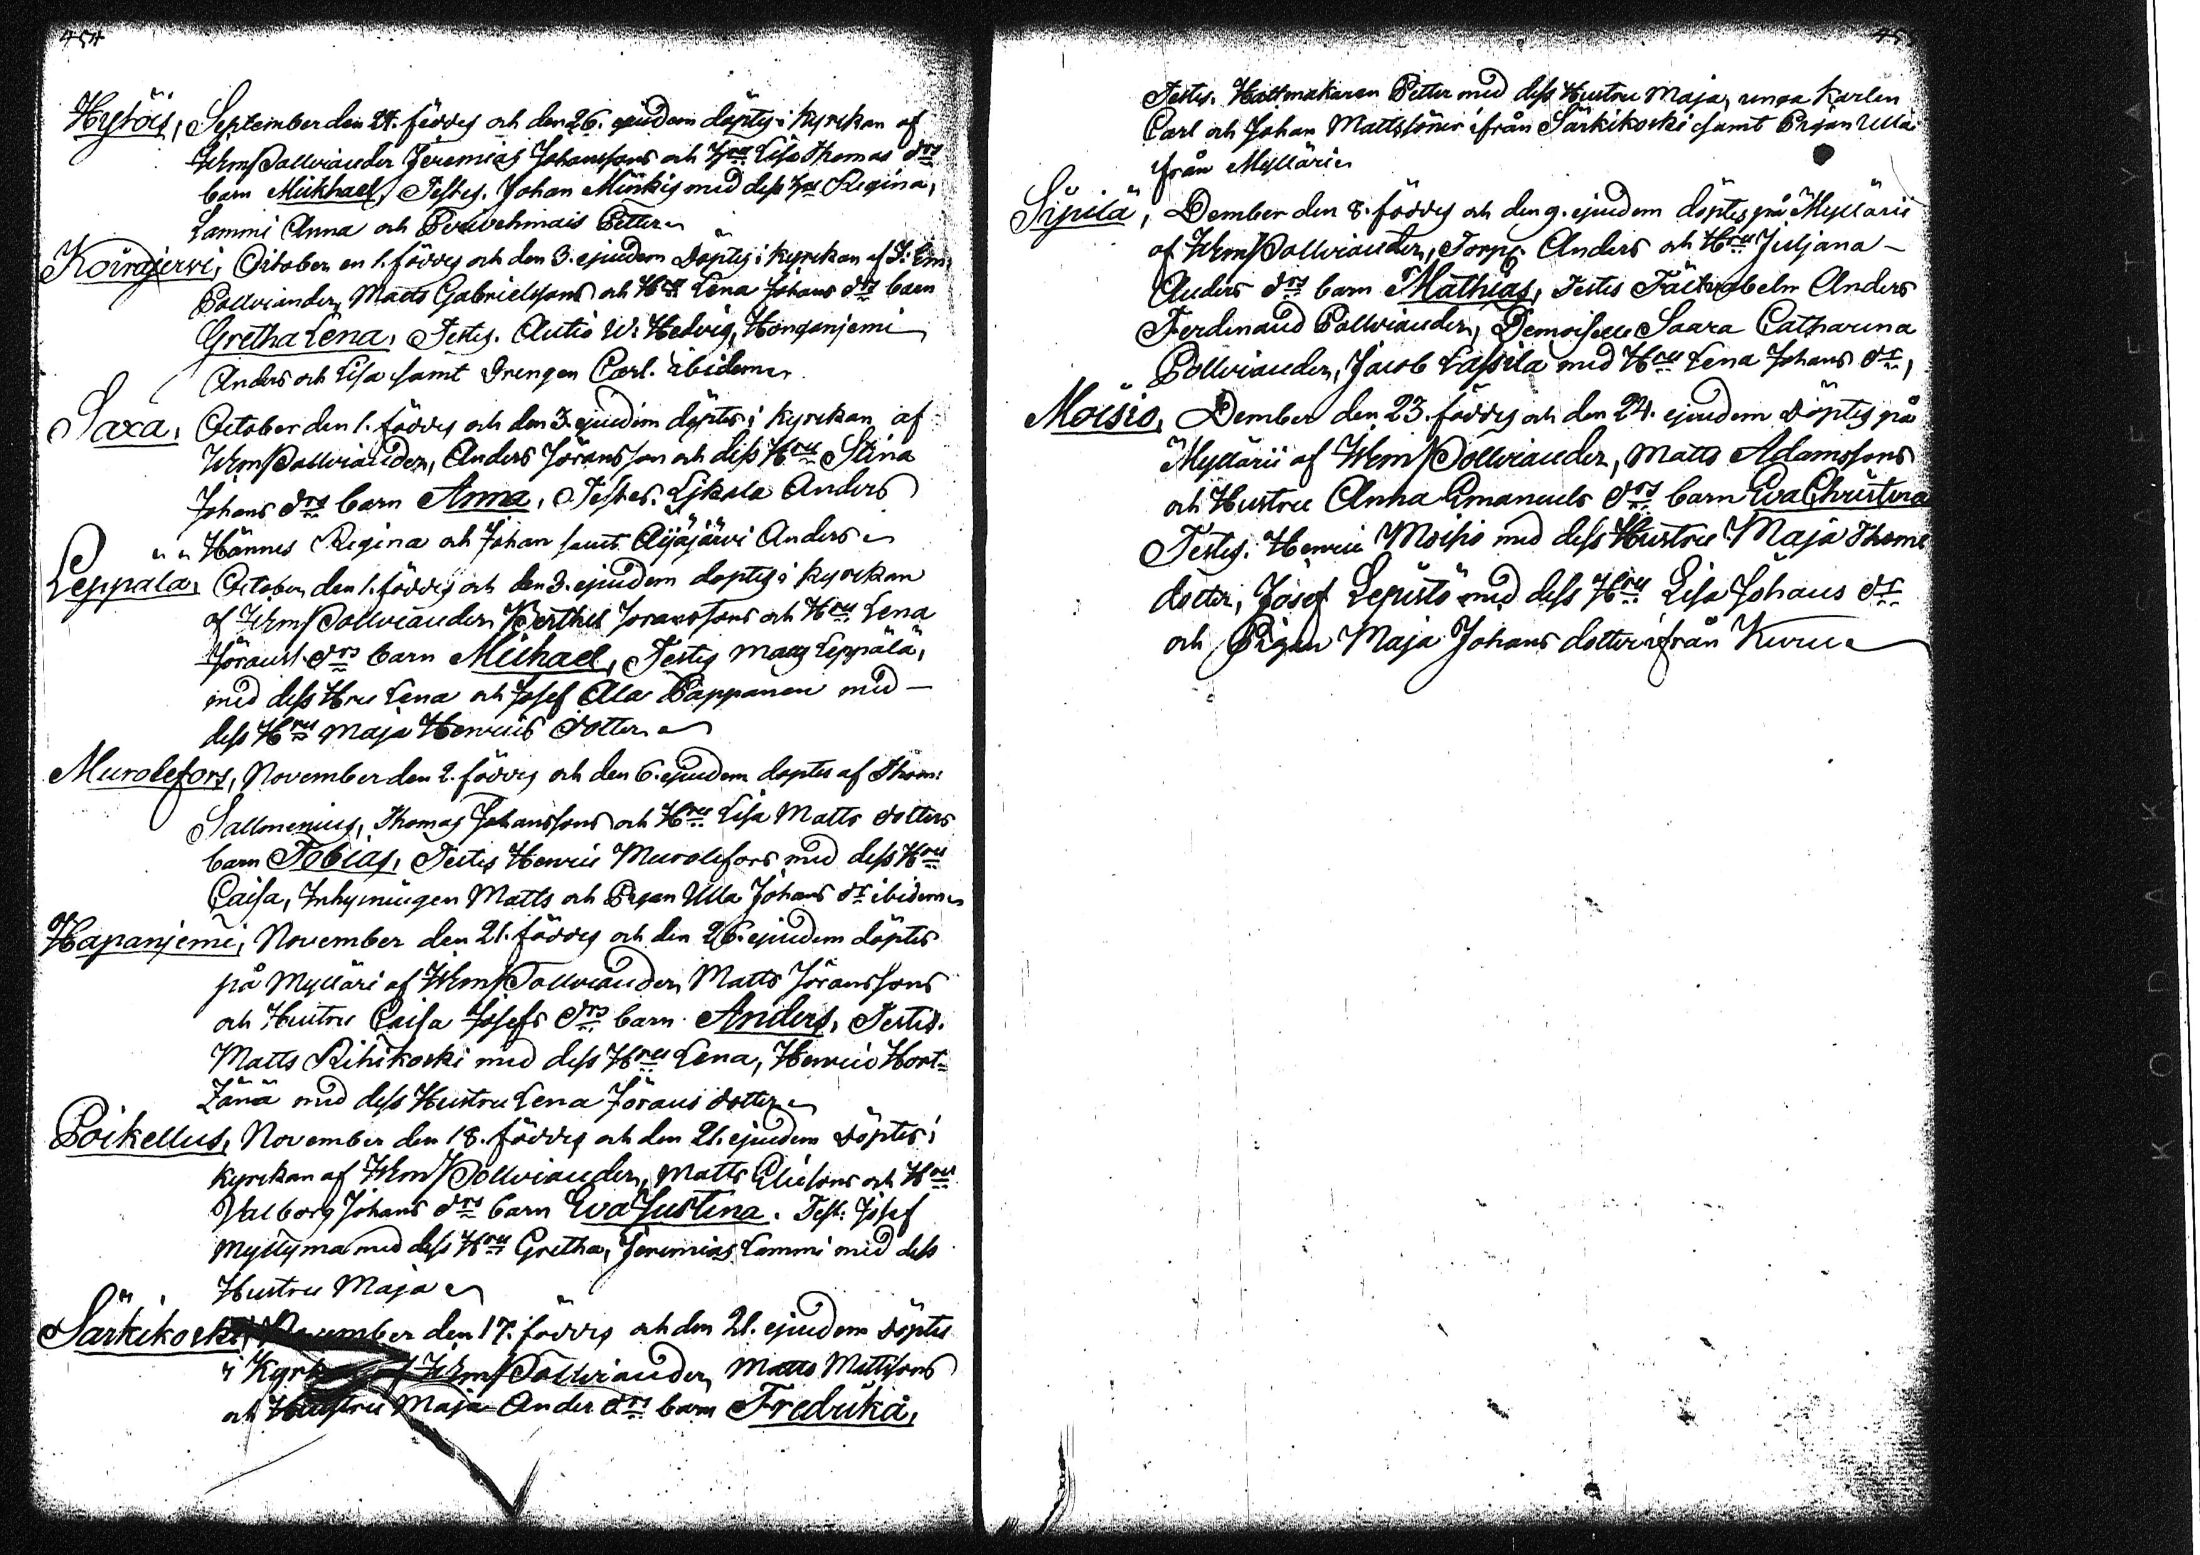 454
Hytöis, September den 24. föddes och den 26. ejusdem döptes i Kyrckan af
Jeremias Johanssons och Hru Lisa Thomas drs
barn Mickhael, Testes. Johan Minkis med dess Hru Regina,
Lammi Anna och Petter
Koirajerwi, October en 1. föddes och den 3. ejusdem Döptes i kyrckan af
Pollviander, Matts Gabrielssons och Hru Lena Johans drs barn
Gretha Lena, Testes. Autio Hedvig, Honganjemi
Anders och Lisa samt Drengen Carl. ibidem
Saxa, October den 1. föddes och den 3. ejusdem döptes i Kyrckan af
Pollviander, Anders Joransson och dess Hru Stina
Johans drs barn Anna, Testes. Ljkala Anders
Hännes Regina och Johan samt Aijäjärwi Anders
Leppälä, October den 1. föddes och den 3. ejusdem doptes i kyrckan
af Pollviander Berthel Joranssons och Hru Lena
Jöransl. drs barn Michael, Testes Leppälä,
med dess Hru Lena och Josef Ala Pappanen med
dess Hru Maja Henrics dotter
Murolefors, November den 2. föddes och den 6. ejusdem doptes af Thom:
Sallmenius, Thomas Johanssons och Hru Lisa Matts dotters
barn Tobias, Testes Henric Murolefors med dess Hru
Caisa, Inhysningen Matts och Pigan Ulla Johans dr ibidem
Hapanjemi, November den 21. föddes och den 26. ejusdem döptes
på Mylläri af Pollviander Matts Jöranssons
och Hustru Caisa Josefs drs barn Anders, Testes.
Matts Rihikoski med dess Hru Lena, Henric Hort=
Zänä med dess Hustru Lena Jörans dotter
Poikellus, November den 18. föddes och den 21. ejusdem Döptes i
Kyrckan af Pollviander, Matts Elissons och Hru
Valborg Johans drs barn Eva Justina. Test: Josef
Myllyma med dess Hru Gretha, Jeremias Lammi med dess
Hustru Maja
Särkikoski, November den 17. föddes och den 21. ejusdem Döptes
i Pollviander Matts Mattssons
och Hustru Maja Anders drs barn Fredrika,
Testes. Hattmakaren Petter med dess Hustru Maja, unga Karlen
Carl och Johan Mattssöner ifrån Särkikoski samt Pigan Ulla
från Mylläri
Sipilä, Dember den 8. föddes och den 9. ejusdem döptes på Myllärii
af Pollviander, Torp: Anders och Hru Juljana
Anders drs barn Mathias, Testes Anders
Ferdinand Pollviander, Demoiselle Saara Catharina
Pollviander, Jacob Lassila med Hru Lena Johans dr,
Moisio, Dember den 23. föddes och den 24. ejusdem Döptes på
Myllärii af Pollviander, Matts Adamssons
och Hustru Anna Emanuels drs barn Eva Christina
Testes. Henric Moisio med dess Hustru Maja Thome
dotter, Josef Lepistö med dess Hru Lisa Johans dr
och Pigan Maja Johans dotter ifrån Kuru
KODAK SAFETY